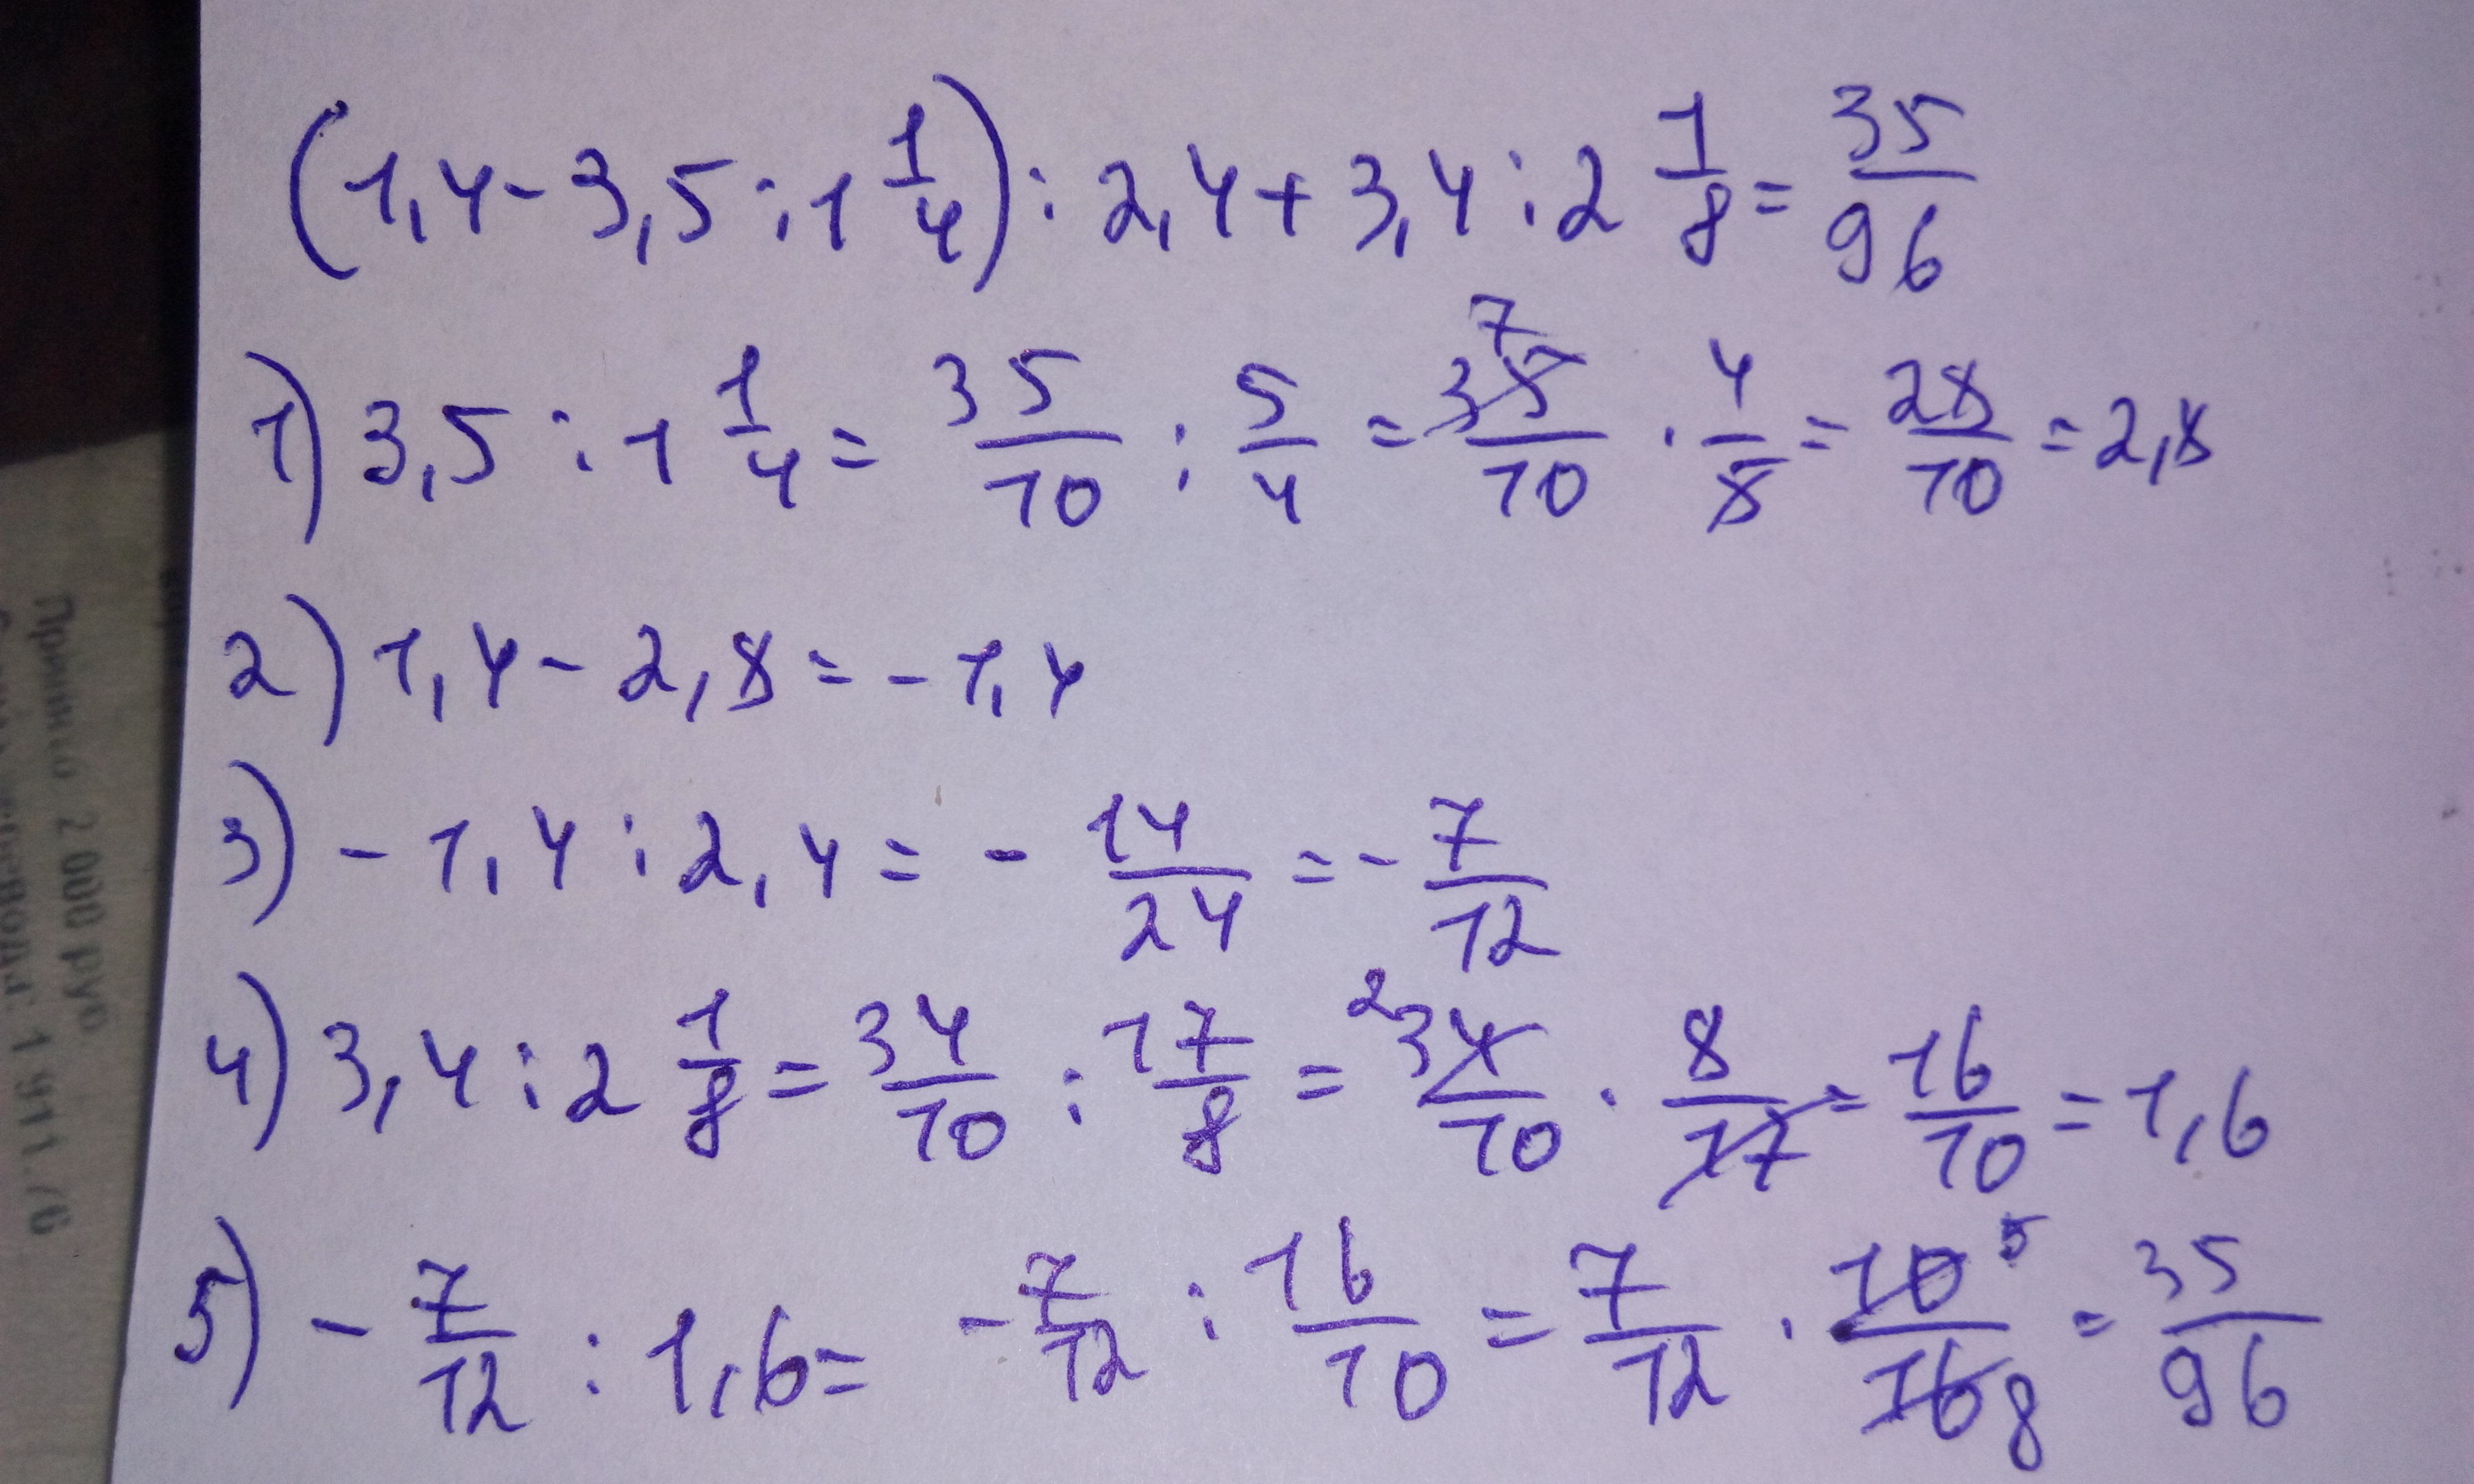 (1,4-3,5:1 1/4):2,4+3,4:2 1/8=35/96
1) 3,5:1 1/4=35/10:5/4=35/10 7·4/5=28/10=2,8
2) 1,4-2,8=-1,4
3) -1,4:2,4=-14/24=-7/12
4) 3,4:2 1/8=34/10:17/8=2 34/10·8/17=16/10=1,6
5) -7/12:1,6=-7/12:16/10=7/12·10 5/16 8=35/96
Принято 2 000 руб
1 911.76